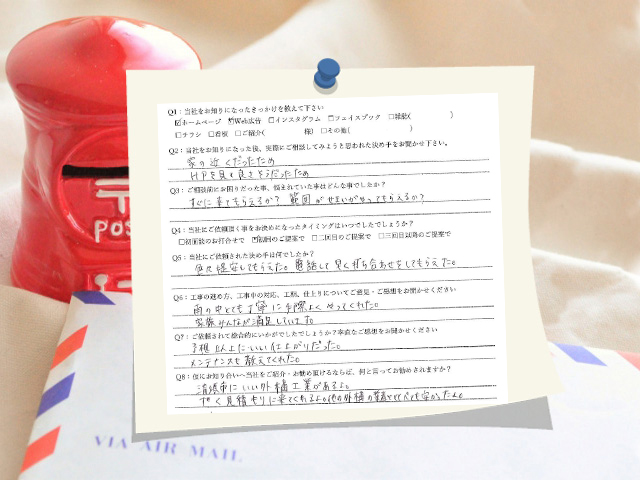 Q1：当社をお知りになったきっかけを教えて下さい
☑ホームページ ☑Web広告 □インスタグラム □フェイスブック □雑誌( )
□チラシ □看板 □ご紹介( 様) □その他( )
Q2：当社をお知りになった後、実際にご相談してみようと思われた決め手をお聞かせ下さい。
家の近くだったため
HPを見て良さそうだったため
Q3：ご相談前にお困りだった事、悩まれていた事はどんな事でしたか？
すぐに来てもらえるか？ 範囲がせまいがやってもらえるか？
Q4：当社にご依頼頂く事をお決めになったタイミングはいつでしたでしょうか？
□初面談のお打合せで ☑初回のご提案で □二回目のご提案で □三回目以降のご提案で
Q5：当社にご依頼された決め手は何でしたか？
色々提案してもらえた。電話して早く打ち合わせをしてもらえた。
Q6：工事の進め方、工事中の対応、工期、仕上りについてご意見・ご感想をお聞かせください
雨の中とても丁寧に手際よくやってくれた。
家族みんなが満足しています。
Q7：ご依頼されて総合的にいかがでしたでしょうか？率直なご感想をお聞かせください
予想以上にいい仕上がりだった。
メンテナンスも教えてくれた。
Q8：仮にお知り合いへ当社をご紹介・お勧め頂けるならば、何と言ってお勧めされますか？
清須市にいい外構工業があるよ。
早く見積もりに来てくれるよ。他の外構の業者と比べても安かったよ。
POS
VIA AIR MAIL